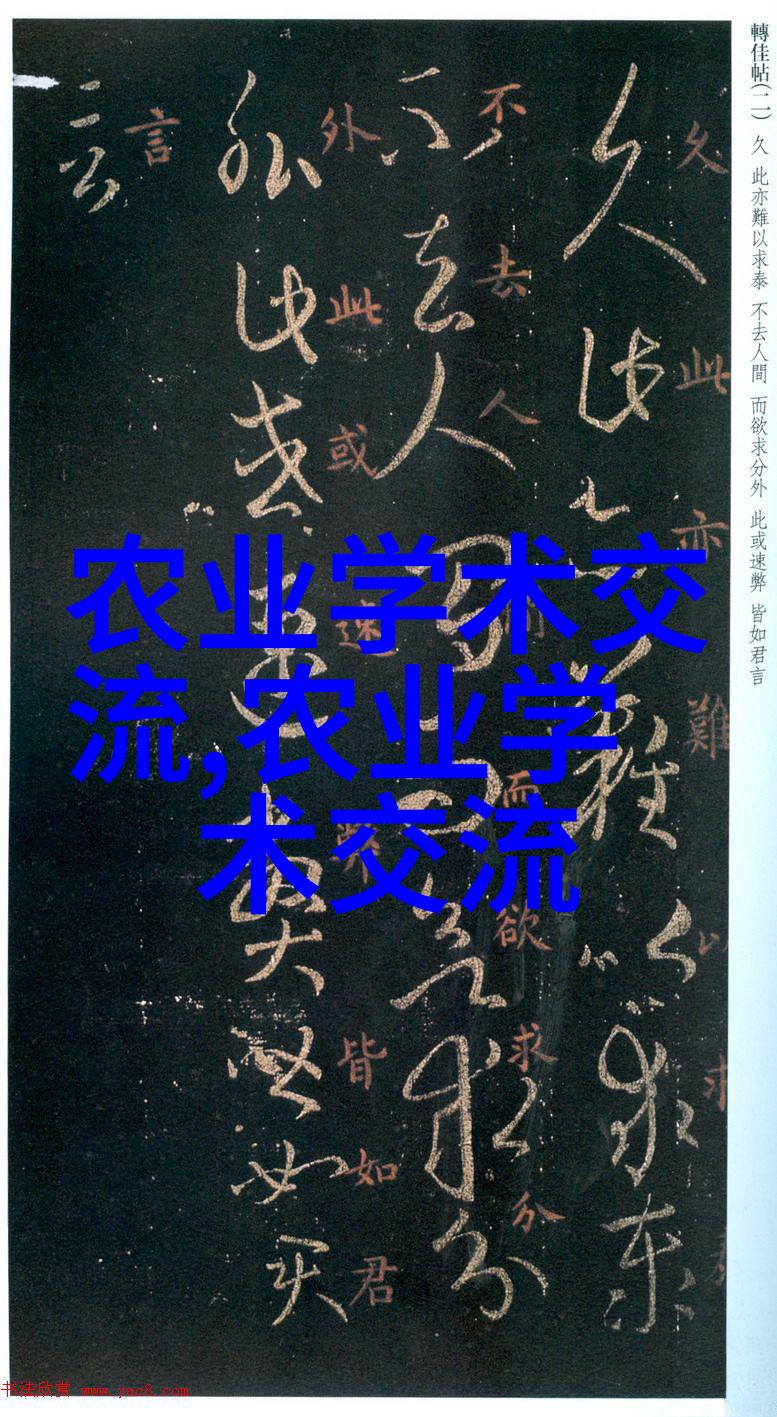 轉佳帖(二) 久 此亦難以求泰 不去人間 而欲求分外 此或速弊 皆如君言
久此亦難以求
不去人而欲求分
外此或速弊皆如君
言
农业学术交
流,农业学
术交流
书法欣赏 www.yac8.com